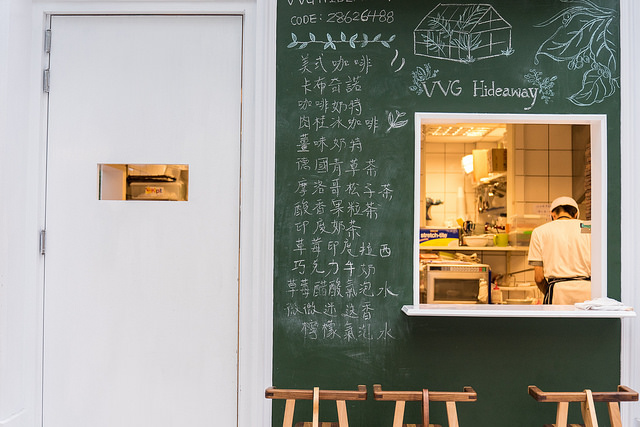 CODE: 28626488
VVG Hideaway
美式咖啡
卡布奇諾
咖啡奶特
肉桂冰咖啡
薑味奶特
德國青草茶
摩洛哥松子茶
酸香果粒茶
印度奶茶
草莓印度拉西
巧克力牛奶
草莓醋酸氣泡水
微微迷迭香
檸檬氣泡水